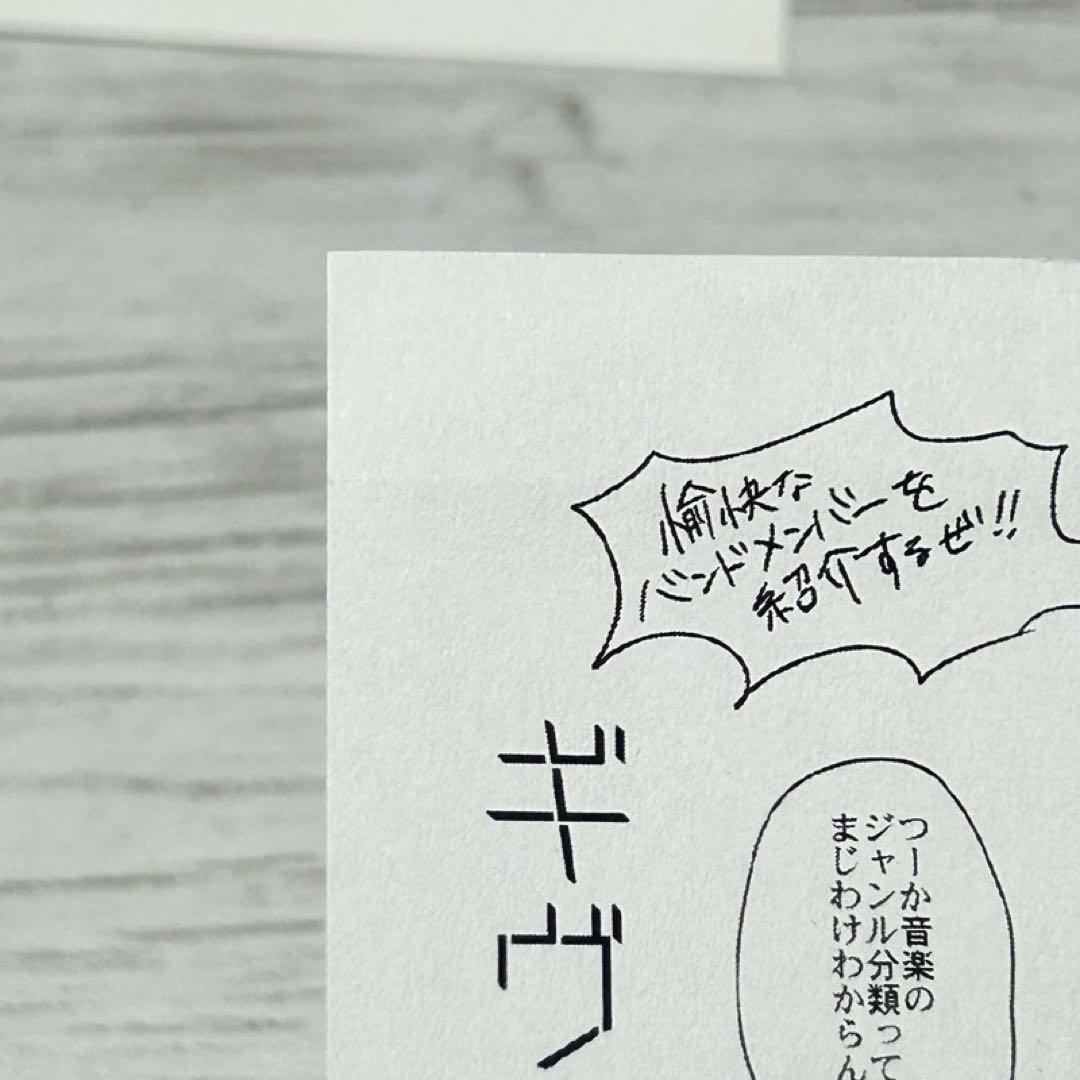 愉快な
バンドメンバーを
紹介するぜ!!
つーか音楽の
ジャンル分類って
まじわけわからん
ギヴ